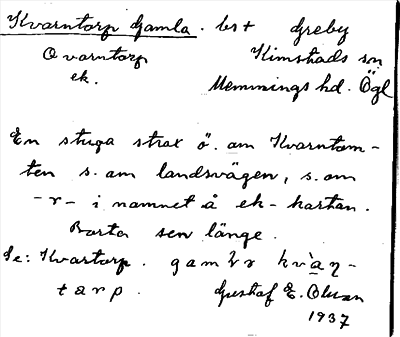 Kvarntorp Gamla. bs+ Greby
Qvarntorp Kimstads sn
ek. Memmings hd. Ögl
En stuga strax ö. om Kvarntom-
ten s. om landsvägen, s. om
-r- i namnet å ek-kartan.
Borta sen länge.
Se: Kvartorp. gambr kvàŋ-
tarp. Gustaf E. Olsson
1937